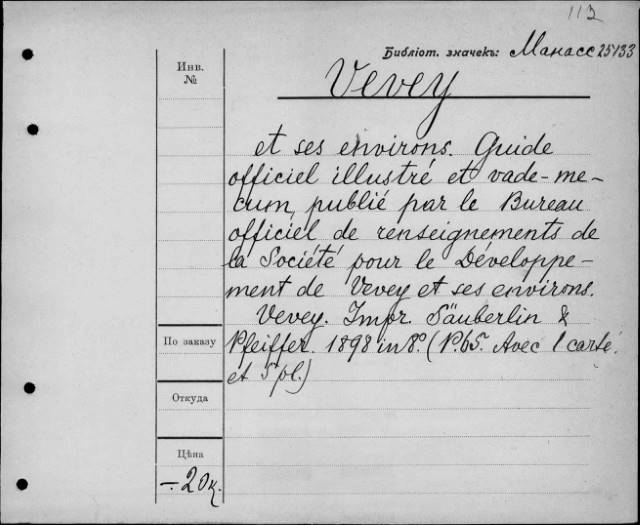 112
Библіот. значекъ: Манасс 25133
Инв.
№
Vevey
et ses environs. Guide
officiel illustré et vade-me-
cum, publié par le Bureau
officiel de renseignements de
la Société pour le Développe-
ment de Vevey et ses environs.
Vevey. Impr. Säuberlin &
Pfeiffer. 1898 in 8°. (P. 65. Avec 1 carte.
et 5 pl.)
По заказу
Откуда
Цѣна
- 20 к.